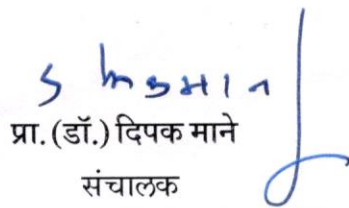 प्रा. (डॉ.) दिपक माने
संचालक